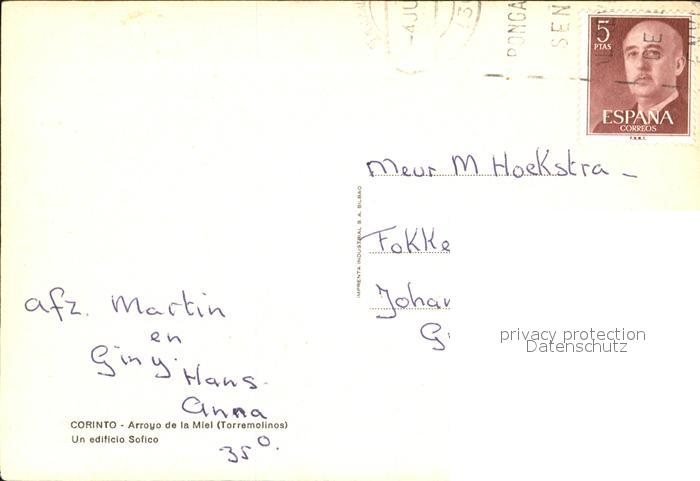 -4JU
PONGA
SEN
DE
5
PTAS
ESPAÑA
CORREOS
F.N.M.T.
Meur M Hoekstra -
Fokke
Johan
G
privacy protection
Datenschutz
IMPRENTA INDUSTRIAL S. A. BILBAO
afz. Martin
en
Giny.
Hans-
Anna
35°.
CORINTO - Arroyo de la Miel (Torremolinos)
Un edificio Sofico